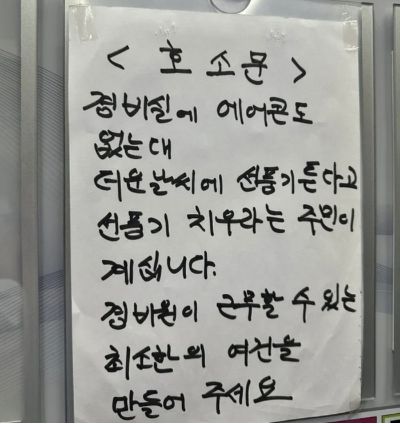 < 호소문 >
경비실에 에어콘도
없는대
더운날씨에 선풍기튼다고
선풍기 치우라는 주민이
계십니다.
경비원이 근무할 수 있는
최소한의 여건을
만들어 주세요